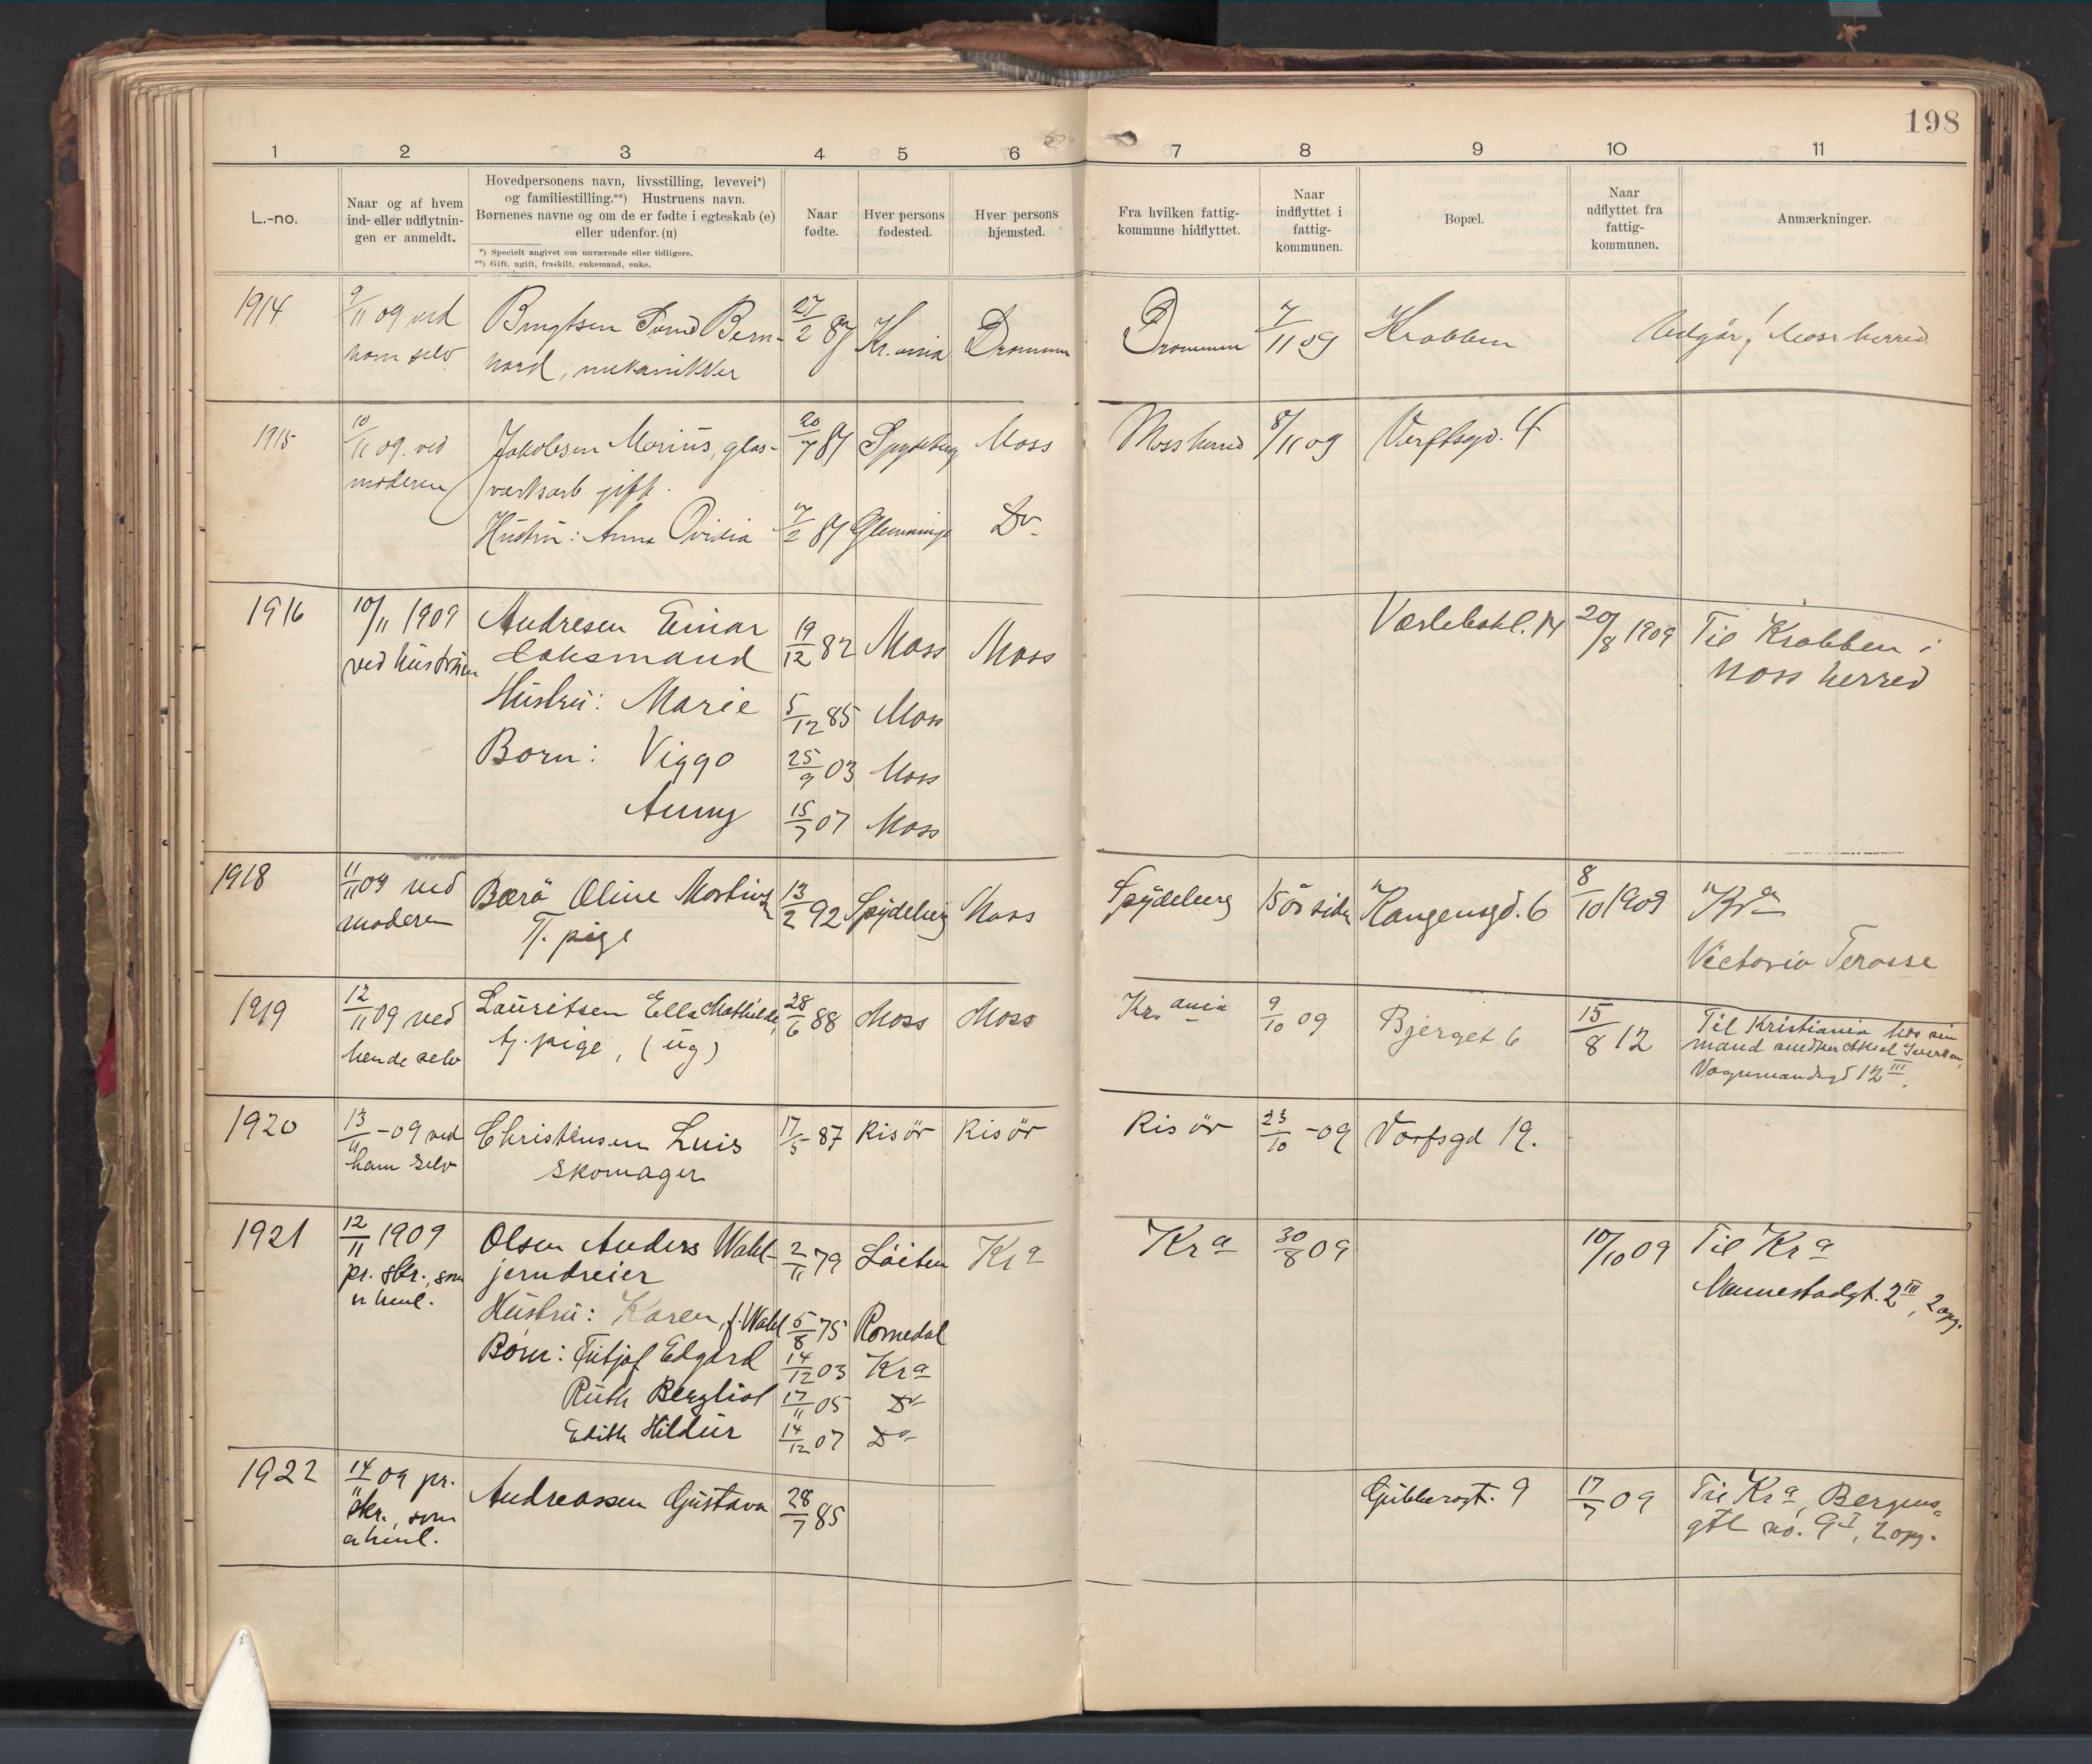 198
1 2 3 4 5 6 7 8 9 10 11
L.-no.
Naar og af hvem
ind- eller udflytnin-
gen er anmeldt.
Hovedpersonens navn, livsstilling, levevei*)
og familiestilling.**) Hustruens navn.
Børnenes navne og om de er fødte i egteskab (e)
eller udenfor. (u)
*) Specielt angivet om nuværende eller tidligere.
**) Gift, ugift, fraskilt, enkemand, enke.
Naar
fødte.
Hver persons
fødested.
Hver persons
hjemsted.
Fra hvilken fattig-
kommune hidflyttet.
Naar
indflyttet i
fattig-
kommunen.
Bopæl.
Naar
udflyttet fra
fattig-
kommunen.
Anmærkninger.
1914 9/11 09 ved Bengtsen Bern- 27/2 87 Kr.ania Drammen Drammen 7/11 09 Krabben Udgår, Moss herred
ham selv hard, mekanikker
1915 10/11 09. ved Jakobsen Marius, glas- 20/7 87 Spydeberg Moss Moss herred 8/11 09 Værftsgd. 4
moderen verksarb. gift.
Hustru: Anna Ovidia 7/2 87 Glemminge Do
1916 10/11 1909 Andresen Einar 19/12 82 Moss Moss Værlebakl. 14 20/8 1909 Til Krabben i
ved hustruen baksmand Moss herred
Hustru: Marie 5/12 85 Moss
Born: Viggo 25/9 03 Moss
Anny 15/7 07 Moss
1918 11/11 09 ved Oline 13/2 92 Spydeberg Moss Spydeberg siden Kongensgd. 6 8/10 1909 Kra
moderen Tj. pige
Victoria Terasse
1919 12/11 09 ved Lauritsen Ella Mathilde, 28/6 88 Moss Moss Kr.ania 9/10 09 Bjerget 6 15/8 12 Til Kristiania hos sin
hende selv tj. pige, (ug) mand snedker Iversen,
Vognmandsgd 12 III.
1920 13/11 - 09 ved Christensen Luis 17/5 - 87 Risör Risör Risör 23/10 - 09 Varfsgd 19.
ham selv skomager
1921 12/11 1909 Olsen Anders Wahl- 2/11 79 Löiten Kra Kra 30/8 09 10/10 09 Til Kra
pr. skr., som jerndreier Mannestadgt. 2 III, 2 opg.
er henl.
Hustru: Karen, f. Wahl 5/8 75 Romedal
Born: Fritjof Edgard 14/12 03 Kra
Ruth Bergliot 17/11 05 Do
Edith Hildur 14/12 07 Do
1922 14/11 09 pr. Andreassen Gustava 28/7 85 Gubberogt. 9 17/7 09 Til Kra, Bergens-
skr., som gtl no. 9 I, 2 opg.
er henl.